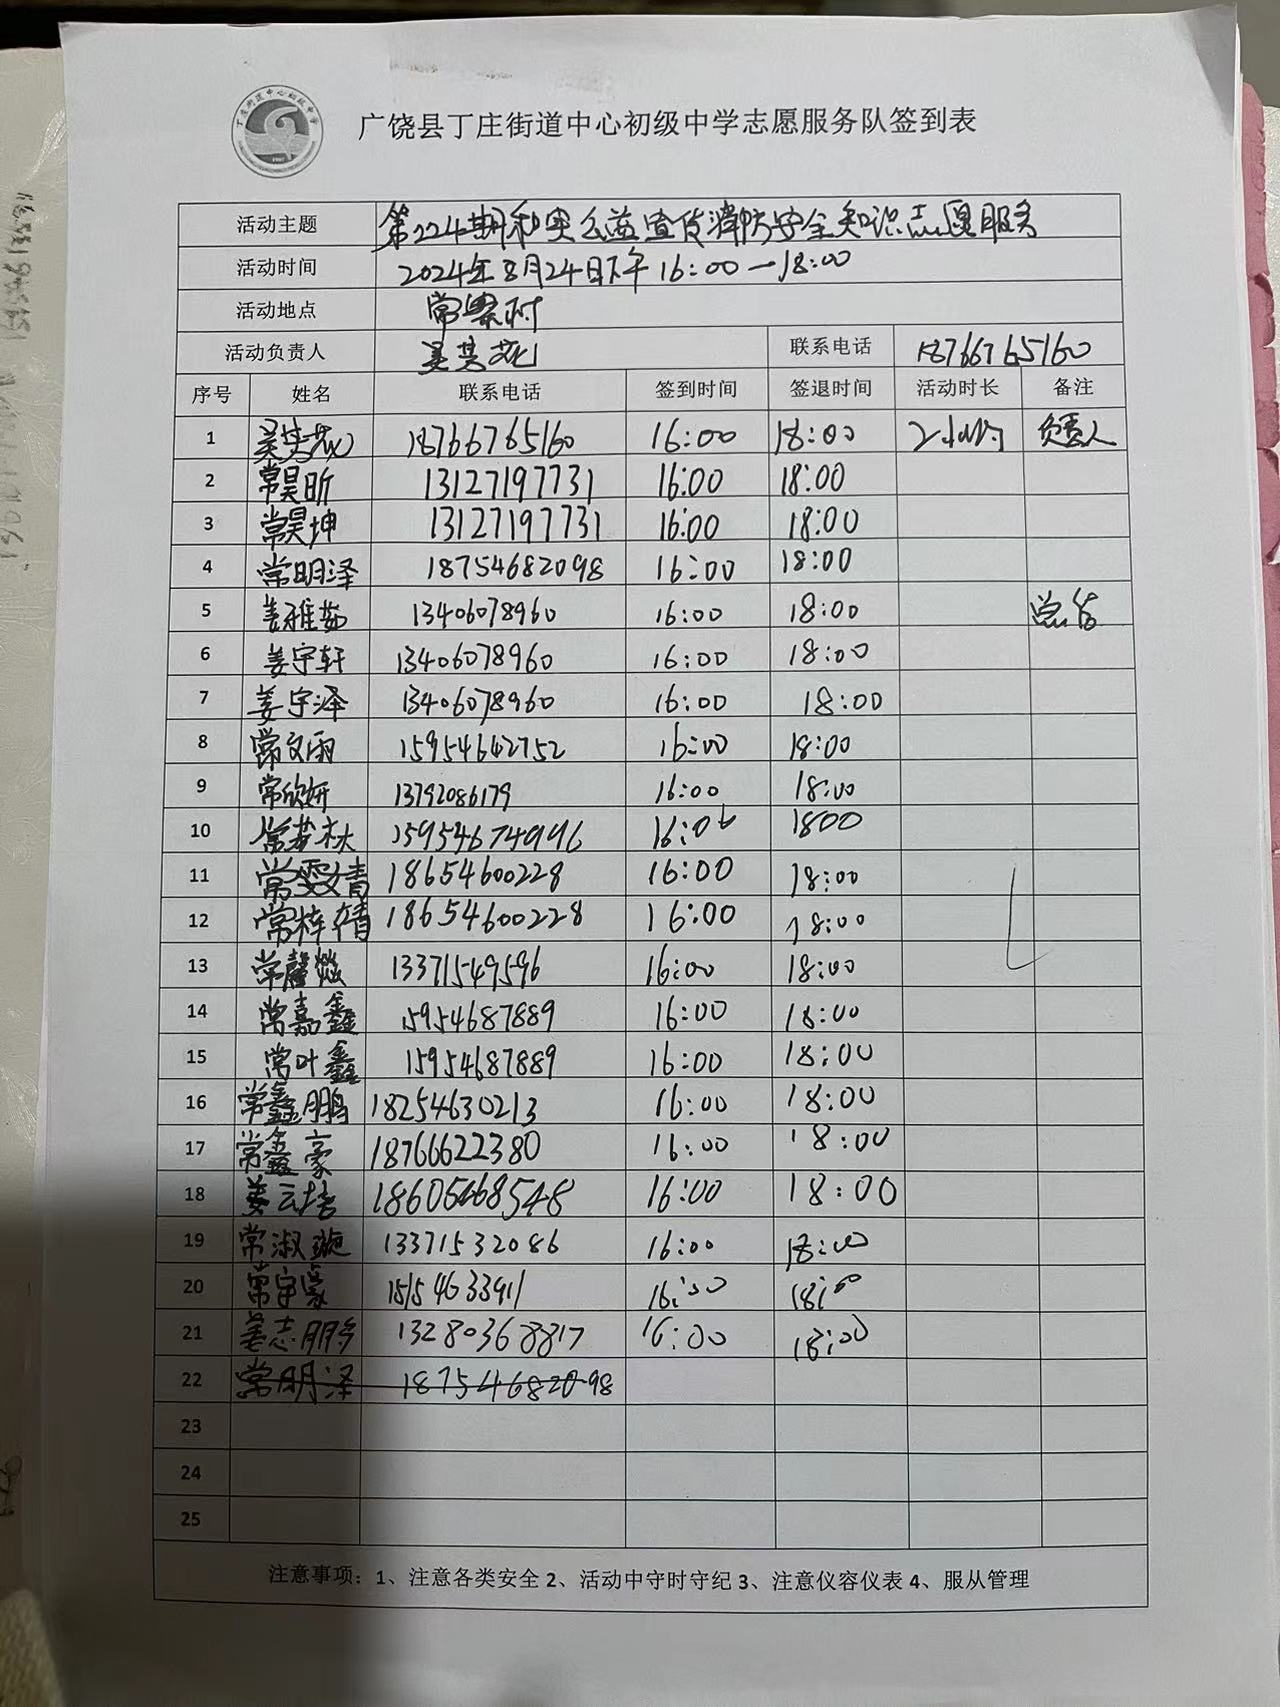 广饶县丁庄街道中心初级中学志愿服务队签到表
活动主题 第224期和实公益宣传消防安全知识志愿服务
活动时间 2024年8月24日下午16:00—18:00
活动地点 常寨村
活动负责人 联系电话 18766765160
序号 姓名 联系电话 签到时间 签退时间 活动时长 备注
1 18766765160 16:00 18:00 2小时 负责人
2 常昊昕 13127197731 16:00 18:00
3 常昊坤 13127197731 16:00 18:00
4 常明泽 18754682098 16:00 18:00
5 姜雅茹 13406078960 16:00 18:00
6 姜宇轩 13406078960 16:00 18:00
7 姜宇泽 13406078960 16:00 18:00
8 常文雨 15954642752 16:00 18:00
9 常欣妍 13792086179 16:00 18:00
10 15954674996 16:00 1800
11 常雯婧 18654600228 16:00 18:00
12 常梓婧 18654600228 16:00 18:00
13 常馨燚 13371549596 16:00 18:00
14 常嘉鑫 15954687889 16:00 18:00
15 常叶鑫 15954687889 16:00 18:00
16 常鑫鹏 18254630213 16:00 18:00
17 常鑫豪 18766622380 16:00 18:00
18 姜云培 18605468548 16:00 18:00
19 常淑璇 13371532086 16:00 18:00
20 常宇豪 15154633911 16:00 18:00
21 姜志鹏 13280368817 16:00 18:00
22 常明泽 18754682098
23
24
25
注意事项：1、注意各类安全 2、活动中守时守纪 3、注意仪容仪表 4、服从管理